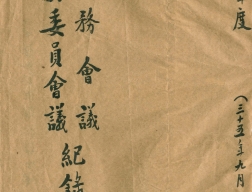 年度
(三十五年九月
務會議
委員會議紀錄